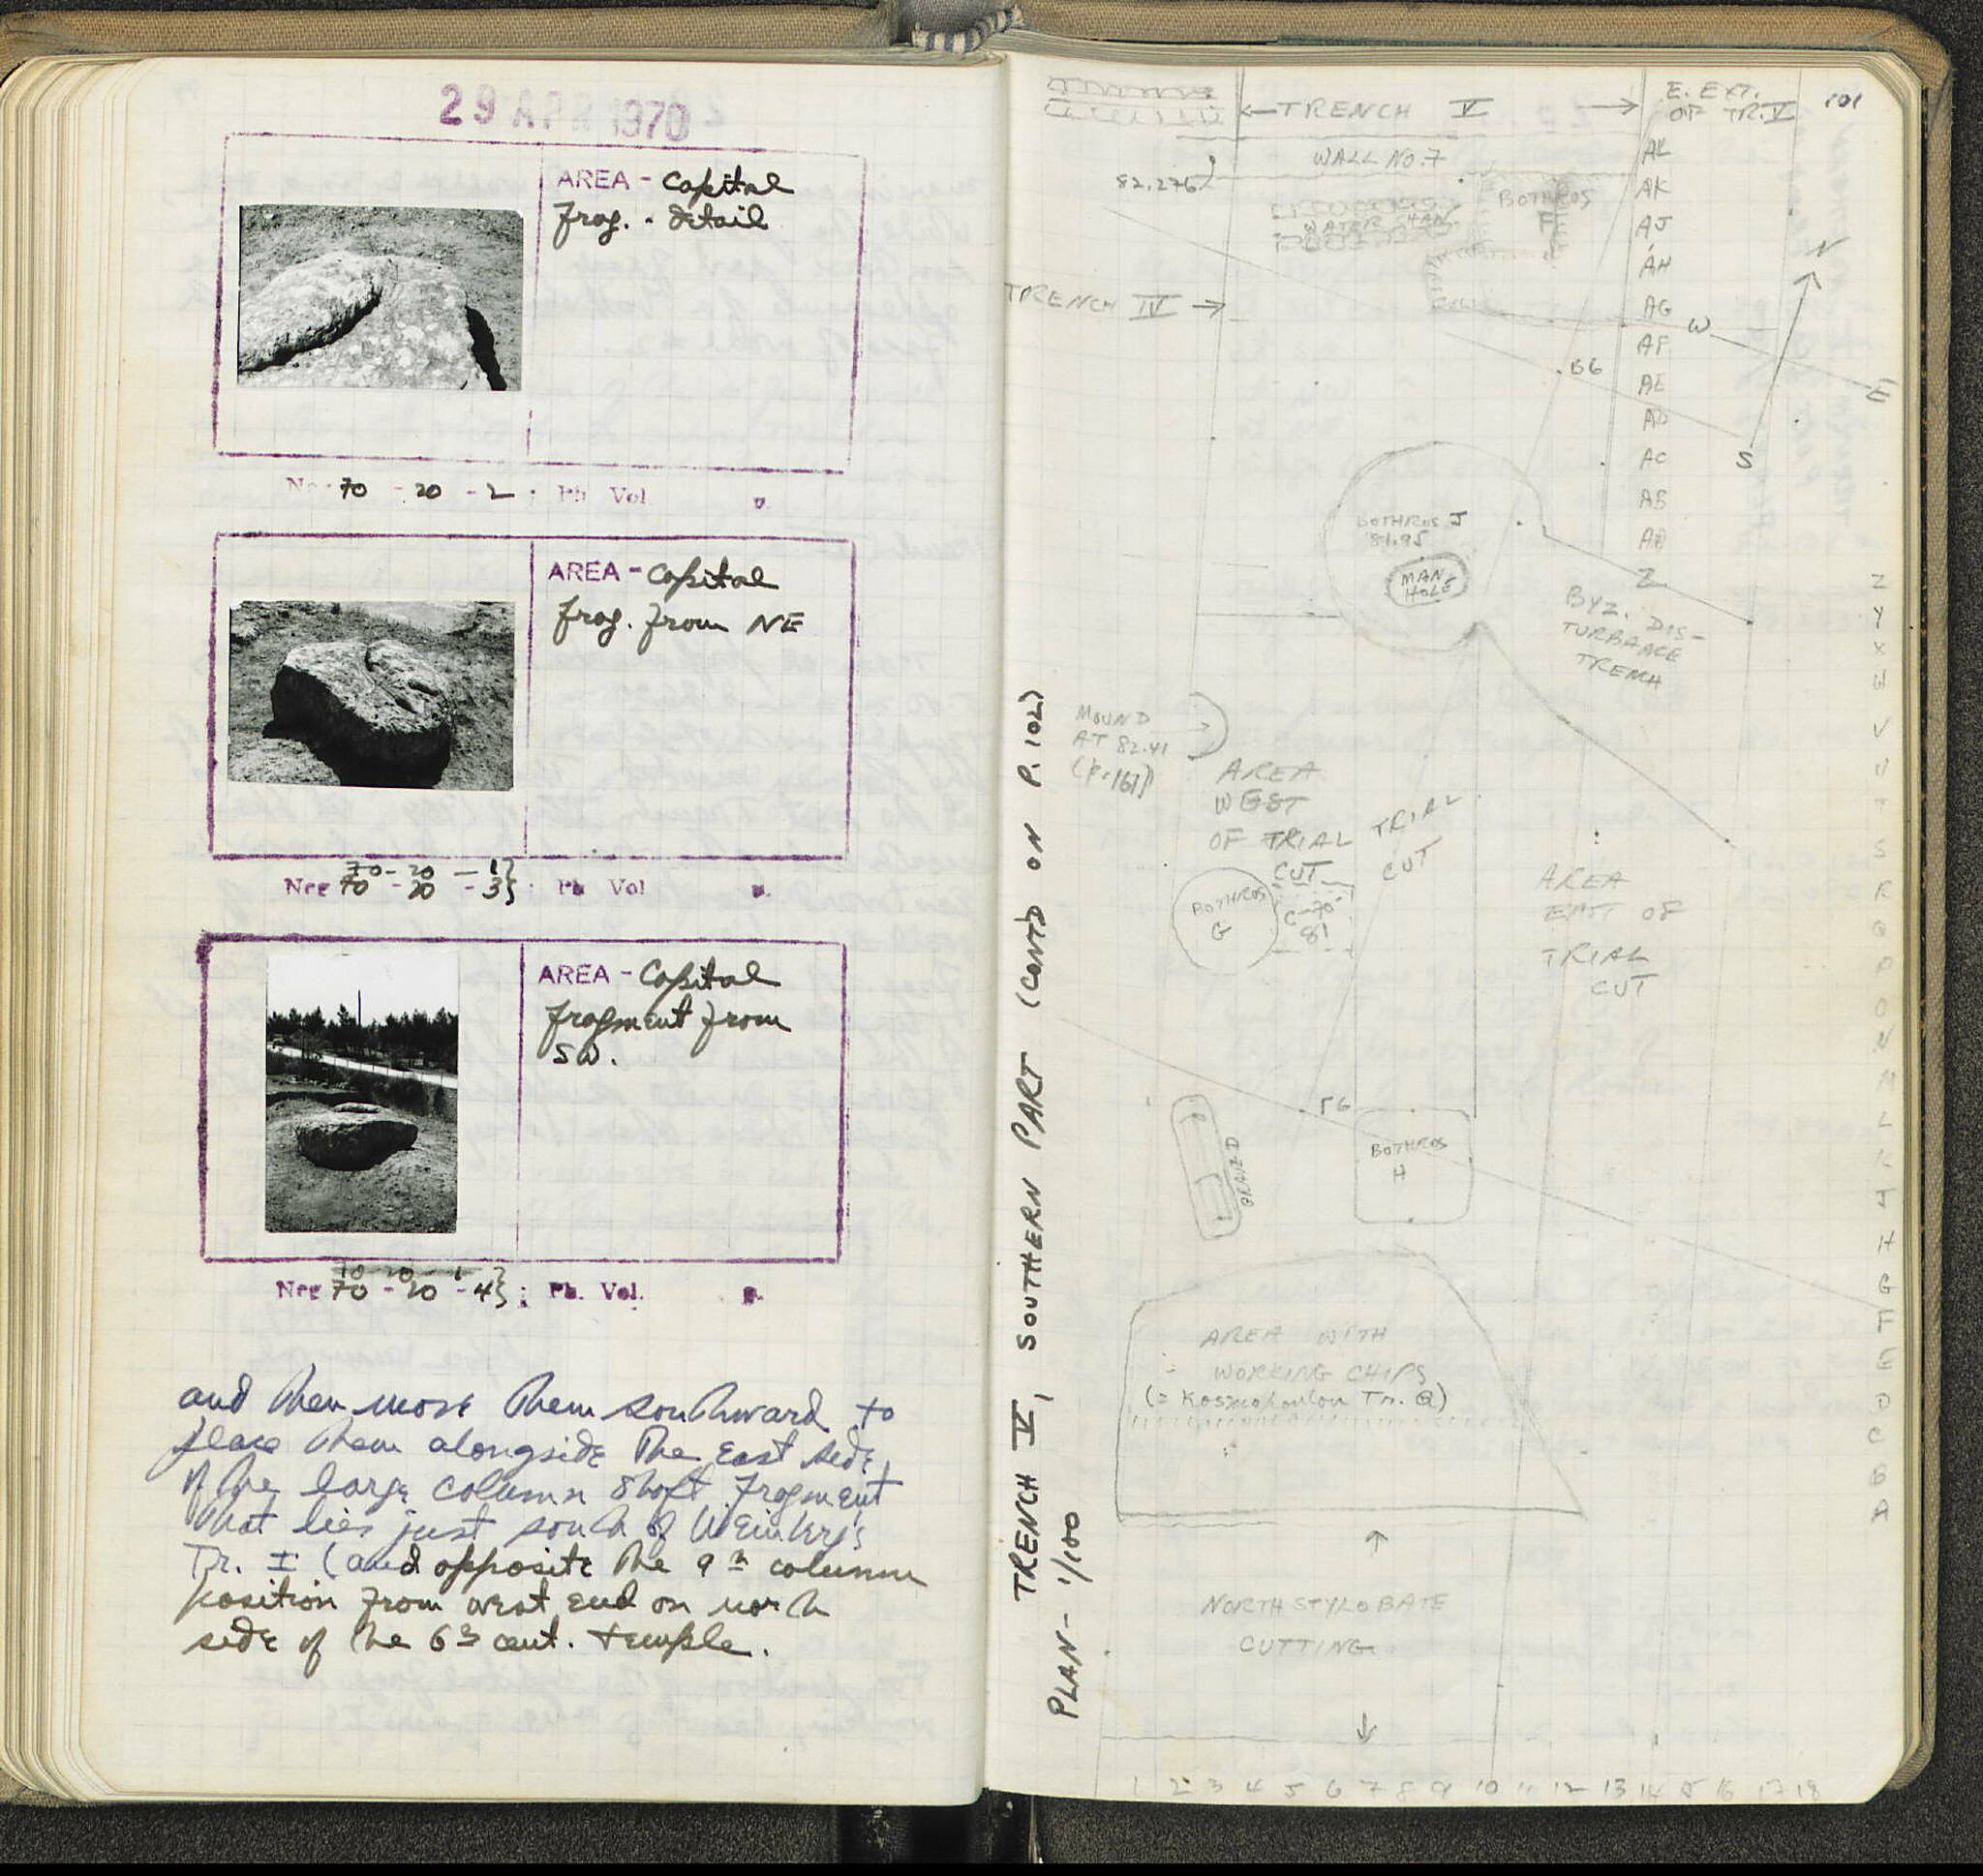 29 APR 1970
AREA - Capital
frag. - detail
Neg 70 - 20 - 2 ; Ph Vol p.
AREA - Capital
frag. from NE
70 - 20 - 1
Neg 70 - 20 - 3 ; Ph Vol p.
AREA - Capital
fragment from
SW.
70 - 20 - 1
Neg 70 - 20 - 4 ; Ph. Vol. p.
and then move them southward to
place them alongside the East side
of the large column shaft fragment
that lies just south of
Tr. I (and opposite the 9th column
position from west end on north
side of the 6th cent. temple.
101
←TRENCH V→
E. EXT.
OF TR. V
WALL NO. 7
82.276
WATER CHAN.
BOTHROS
F
TRENCH IV →
AL
AK
AJ
AH
AG
AF
AE
AD
AC
AB
AA
Z
N
W
E
S
B6
BOTHROS J
81.95
MAN
HOLE
BYZ. DIS-
TURBANCE
TRENCH
MOUND
AT 82.41
(p. 161)
AREA
WEST
OF TRIAL
CUT
TRIAL
CUT
BOTHROS
G
C-70-
81
AREA
EAST OF
TRIAL
CUT
Γ6
GRAVE D
BOTHROS
H
AREA WITH
WORKING CHIPS
(= Kosmopoulou Tr. a)
NORTH STYLOBATE
CUTTING
TRENCH V, SOUTHERN PART (CONT'D ON P. 102)
PLAN - 1/100
Z
Y
X
W
V
U
T
S
R
Q
P
O
N
M
L
K
J
H
G
F
E
D
C
B
A
1 2 3 4 5 6 7 8 9 10 11 12 13 14 15 16 17 18